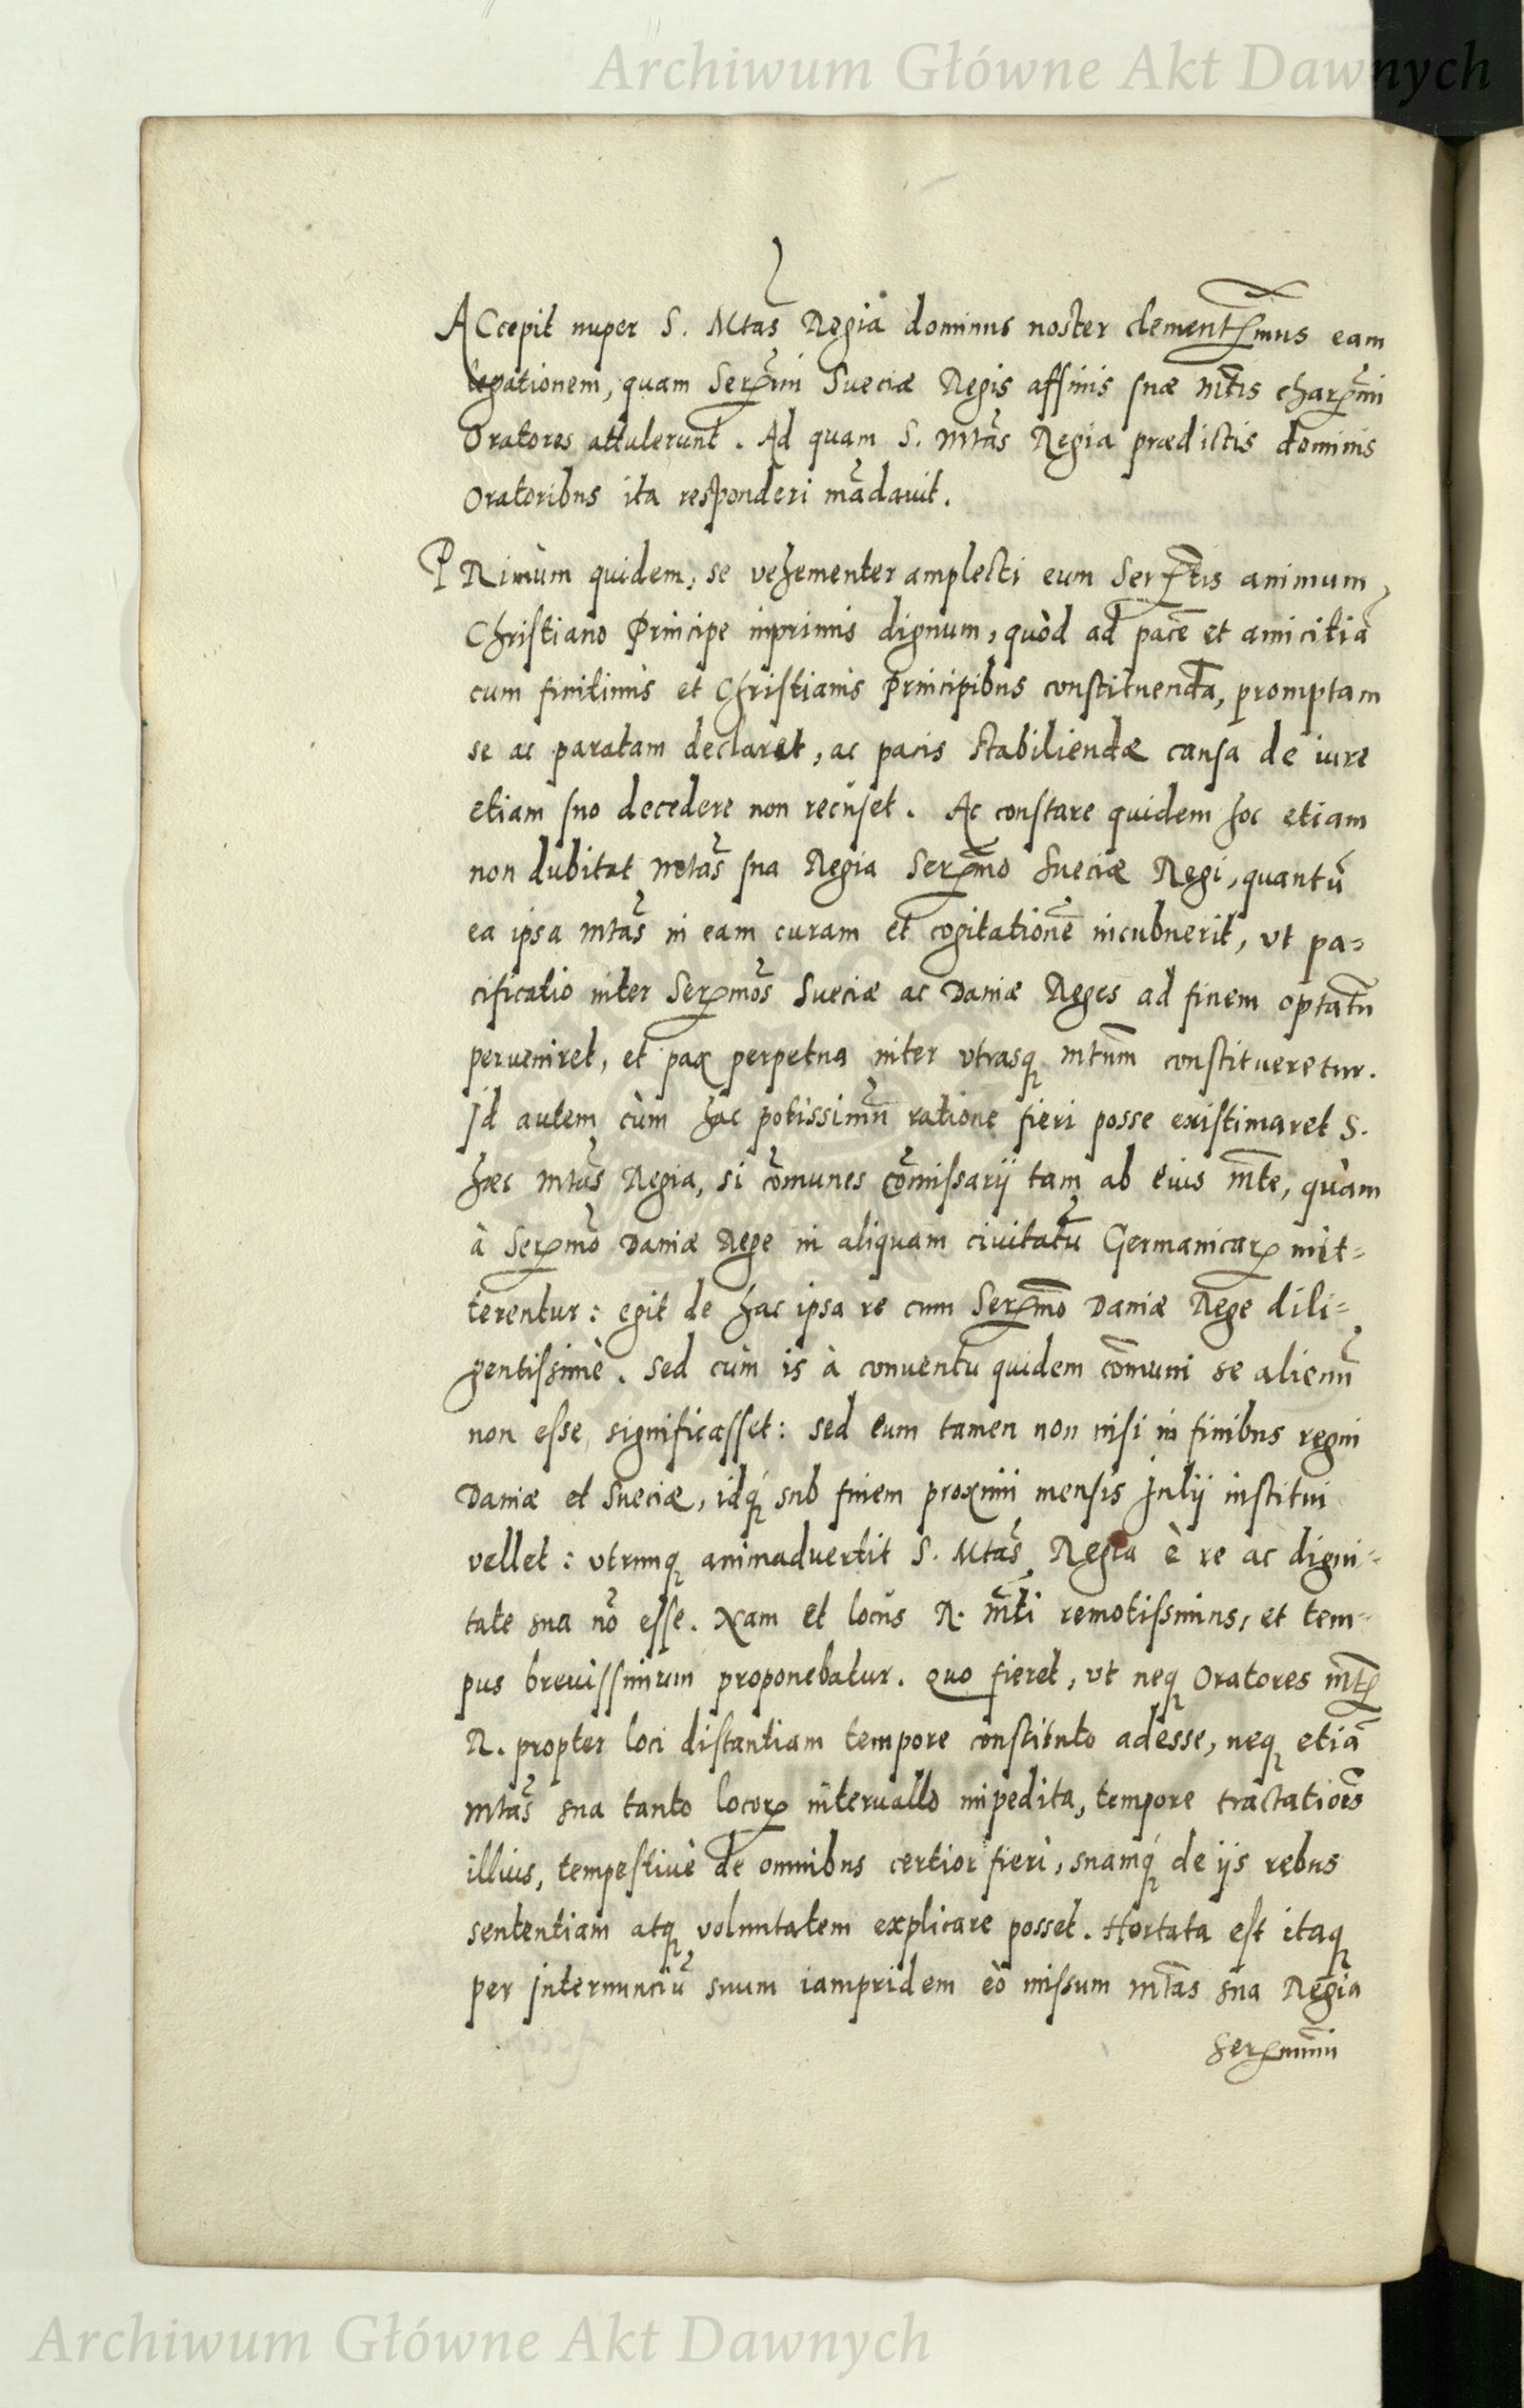 Archiwum Główne Akt Dawnych
ACcepit nuper S. Mtas Regia dominus noster clementissimus eam
legationem, quam Ser.mi Sueciæ Regis affinis suæ Mtis char.mi
Oratores attulerunt. Ad quam S. Mtas Regia prædictis dominis
Oratoribus ita responderi mādauit.
PRimùm quidem, se vehementer amplecti eum Ser.tis animum,
Christiano Principe inprimis dignum, quòd ad pacē et amicitiā
cum finitimis et Christianis Principibus constituendā, promptam
se ac paratam declaret, ac pacis stabiliendæ causa de iure
etiam suo decedere non recuset. Ac constare quidem hoc etiam
non dubitat Mtas sua Regia Ser.mo Sueciæ Regi, quantū
ea ipsa Mtas in eam curam et cogitationē incubuerit, vt pa=
cificatio inter Ser.mos Sueciæ ac Daniæ Reges ad finem optatū
perueniret, et pax perpetua inter vtrasq Mtum constitueretur.
Id autem cùm hac potissimū ratione fieri posse existimaret S.
hæc Mtas Regia, si cōmunes cōmissarij tam ab eius Mte, quàm
à Ser.mo Daniæ Rege in aliquam ciuitatū Germanicar. mit=
terentur: egit de hac ipsa re cum Ser.mo Daniæ Rege dili=
gentissimè. Sed cùm is à conuentu quidem cōmuni se alienū
non esse significasset: sed eum tamen non nisi in finibus regni
Daniæ et Sueciæ, idq́ sub finem proximi mensis Julij institui
vellet: vtrunq animaduertit S. Mtas Regia è re ac digni=
tate sua nō esse. Nam et locus R. Mti remotissimus, et tem=
pus breuissimum proponebatur. Quo fieret, vt neq Oratores Mtis
R. propter loci distantiam tempore constituto adesse, neq etiā
Mtas sua tanto locor. interuallo impedita, tempore tractationis
illius, tempestiuè de omnibus certior fieri, suamq́ de ijs rebus
sententiam atq voluntatem explicare posset. Hortata est itaq
per Internunciū suum iampridem eò missum Mtas sua Regia
Ser.mum
Archiwum Główne Akt Dawnych